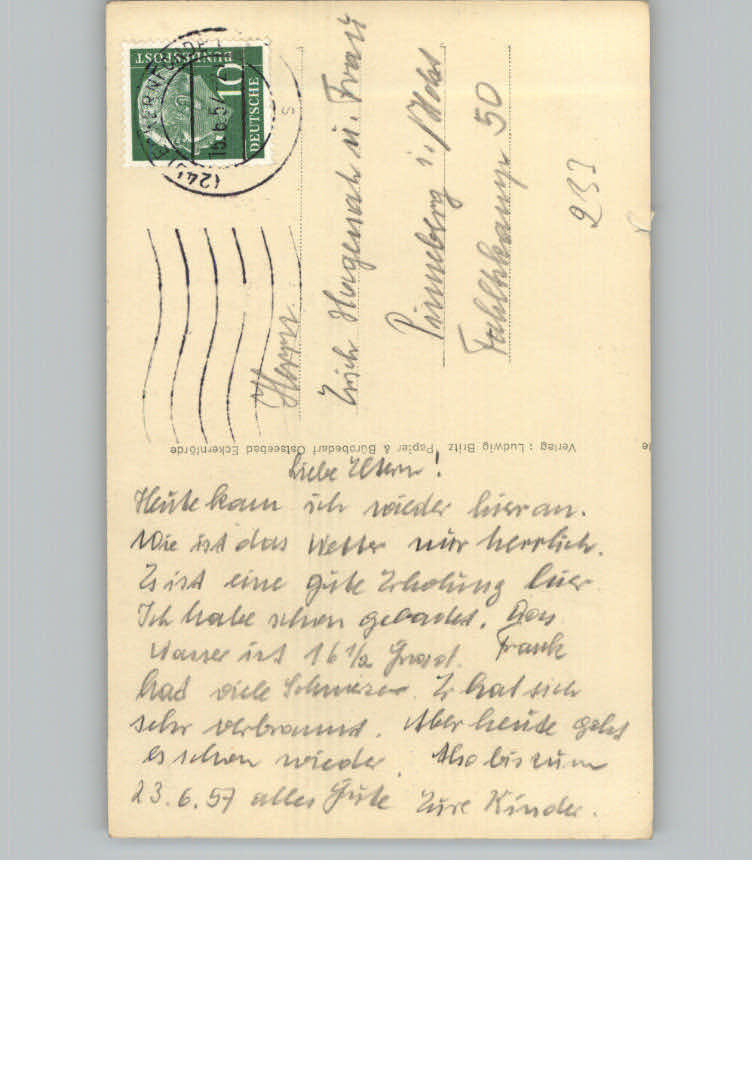 DEUTSCHE
BUNDESPOST
10
(24b) ECKERNFÖRDE
15.6.57
Herrn
Erich Hagenah u. Frau
Pinneberg i./Holst
Fahltskamp 50
233
Verlag: Ludwig Britz Papier & Bürobedarf Ostseebad Eckernförde
Liebe Eltern!
Heute kam ich wieder hier an.
Wie ist das Wetter nur herrlich.
Es ist eine gute Erholung hier
Ich habe schon gebadet. Das
Wasser ist 16 1/2 Grad. Frank
hat viele Schmerzen. Er hat sich
sehr verbrannt. Aber heute geht
es schon wieder. Also bis zum
23.6.57 alles Gute Eure Kinder.